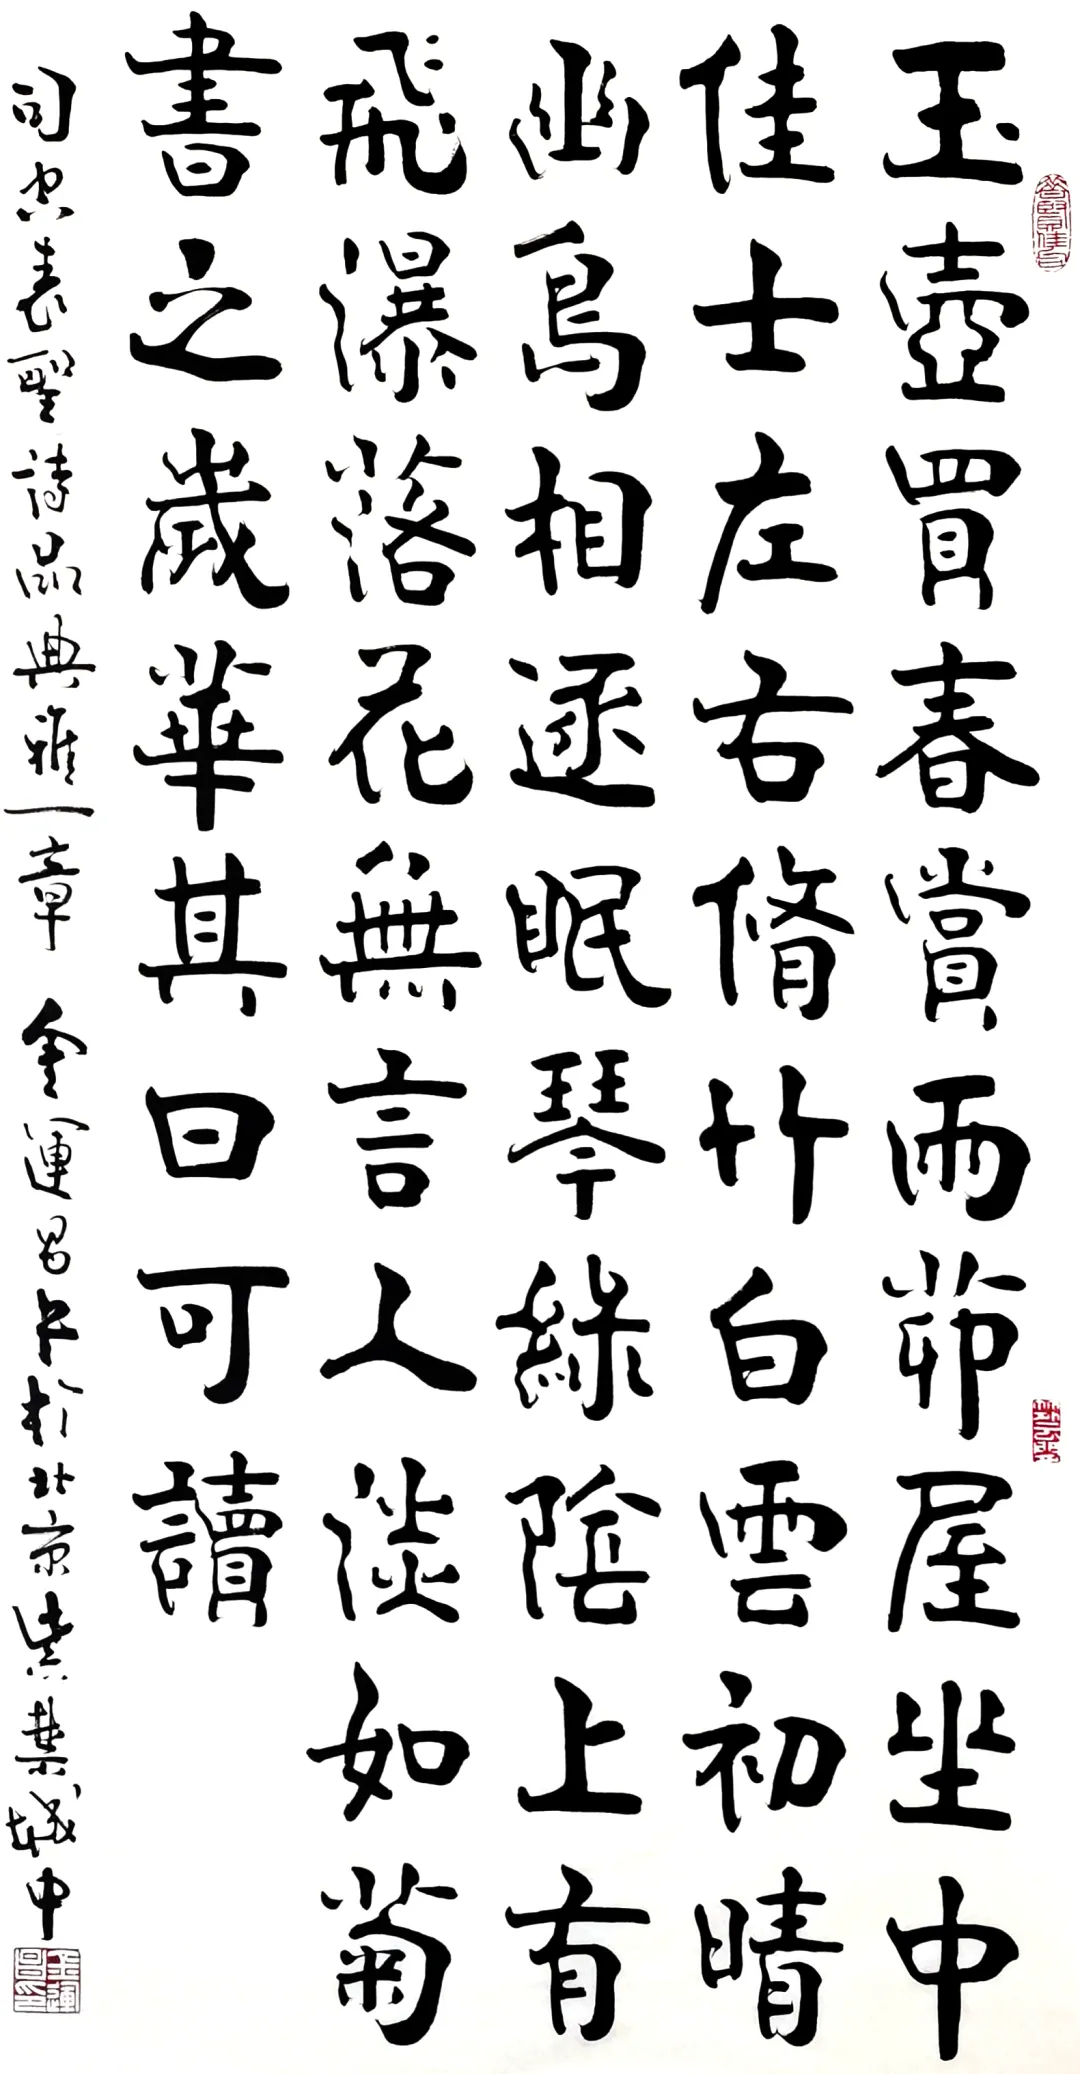 玉壺買春賞雨茆屋坐中
佳士左右脩竹白雲初晴
幽鳥相逐眠琴綠陰上有
飛瀑落花無言人淡如菊
書之歲華其曰可讀
司空表聖詩品典雅一章 金運昌书於北京紫禁城中